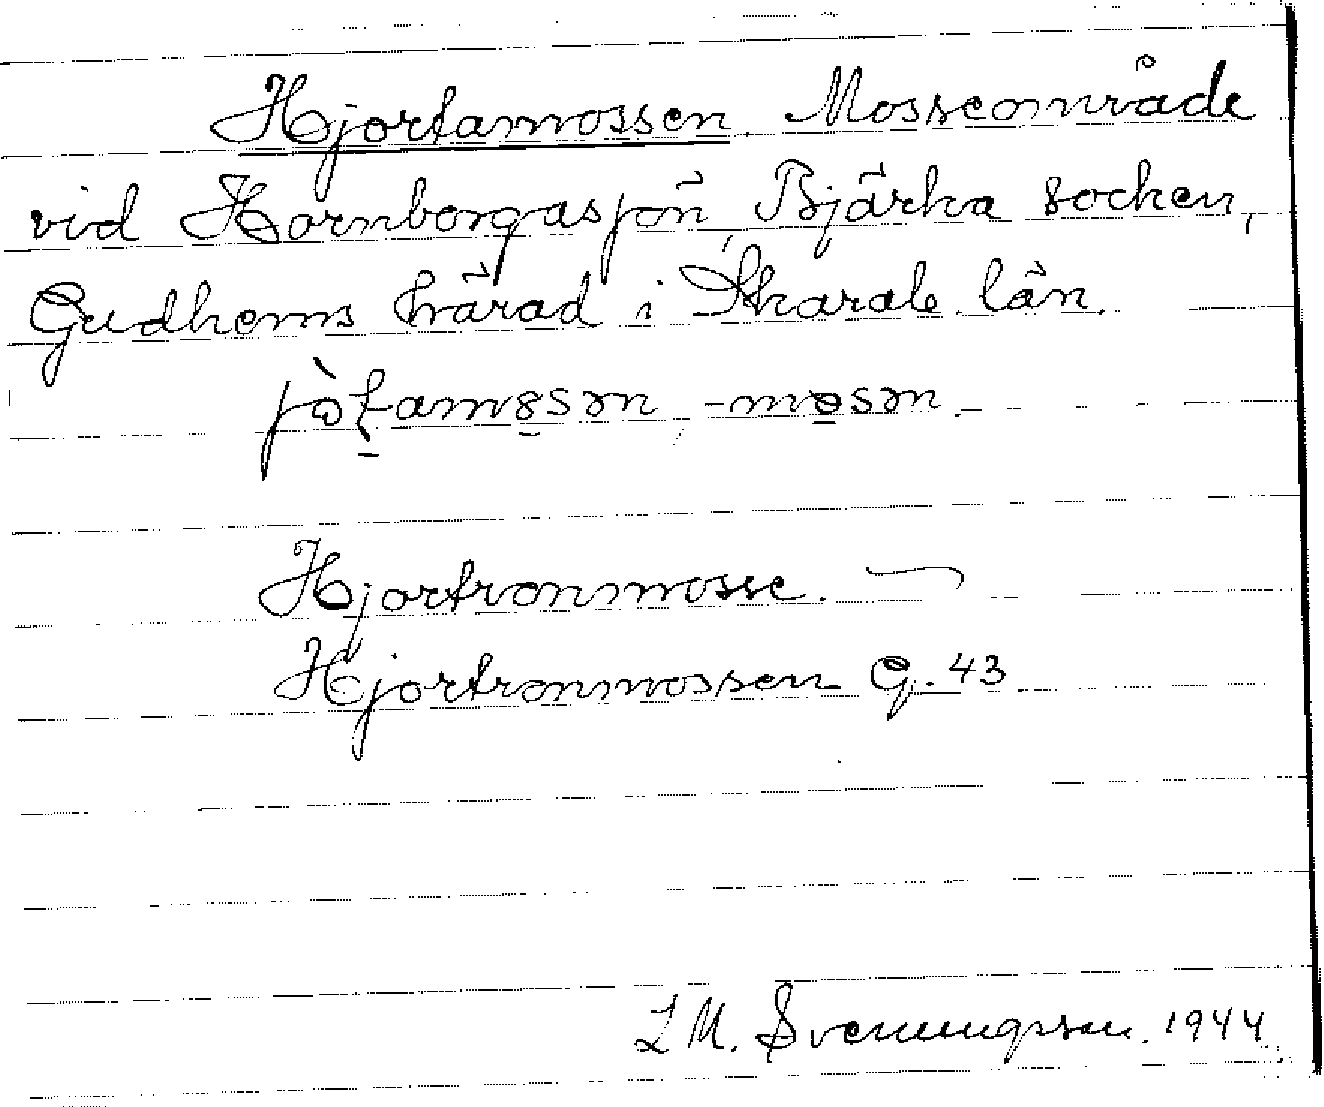 Hjortamossen. Mosseområde
vid Hornborgasjön, Bjärka socken,
Gudhems härad i Skarab. län.
Hjortronmosse.
Hjortronmossen G. 43
L M. Svenungsson. 1944